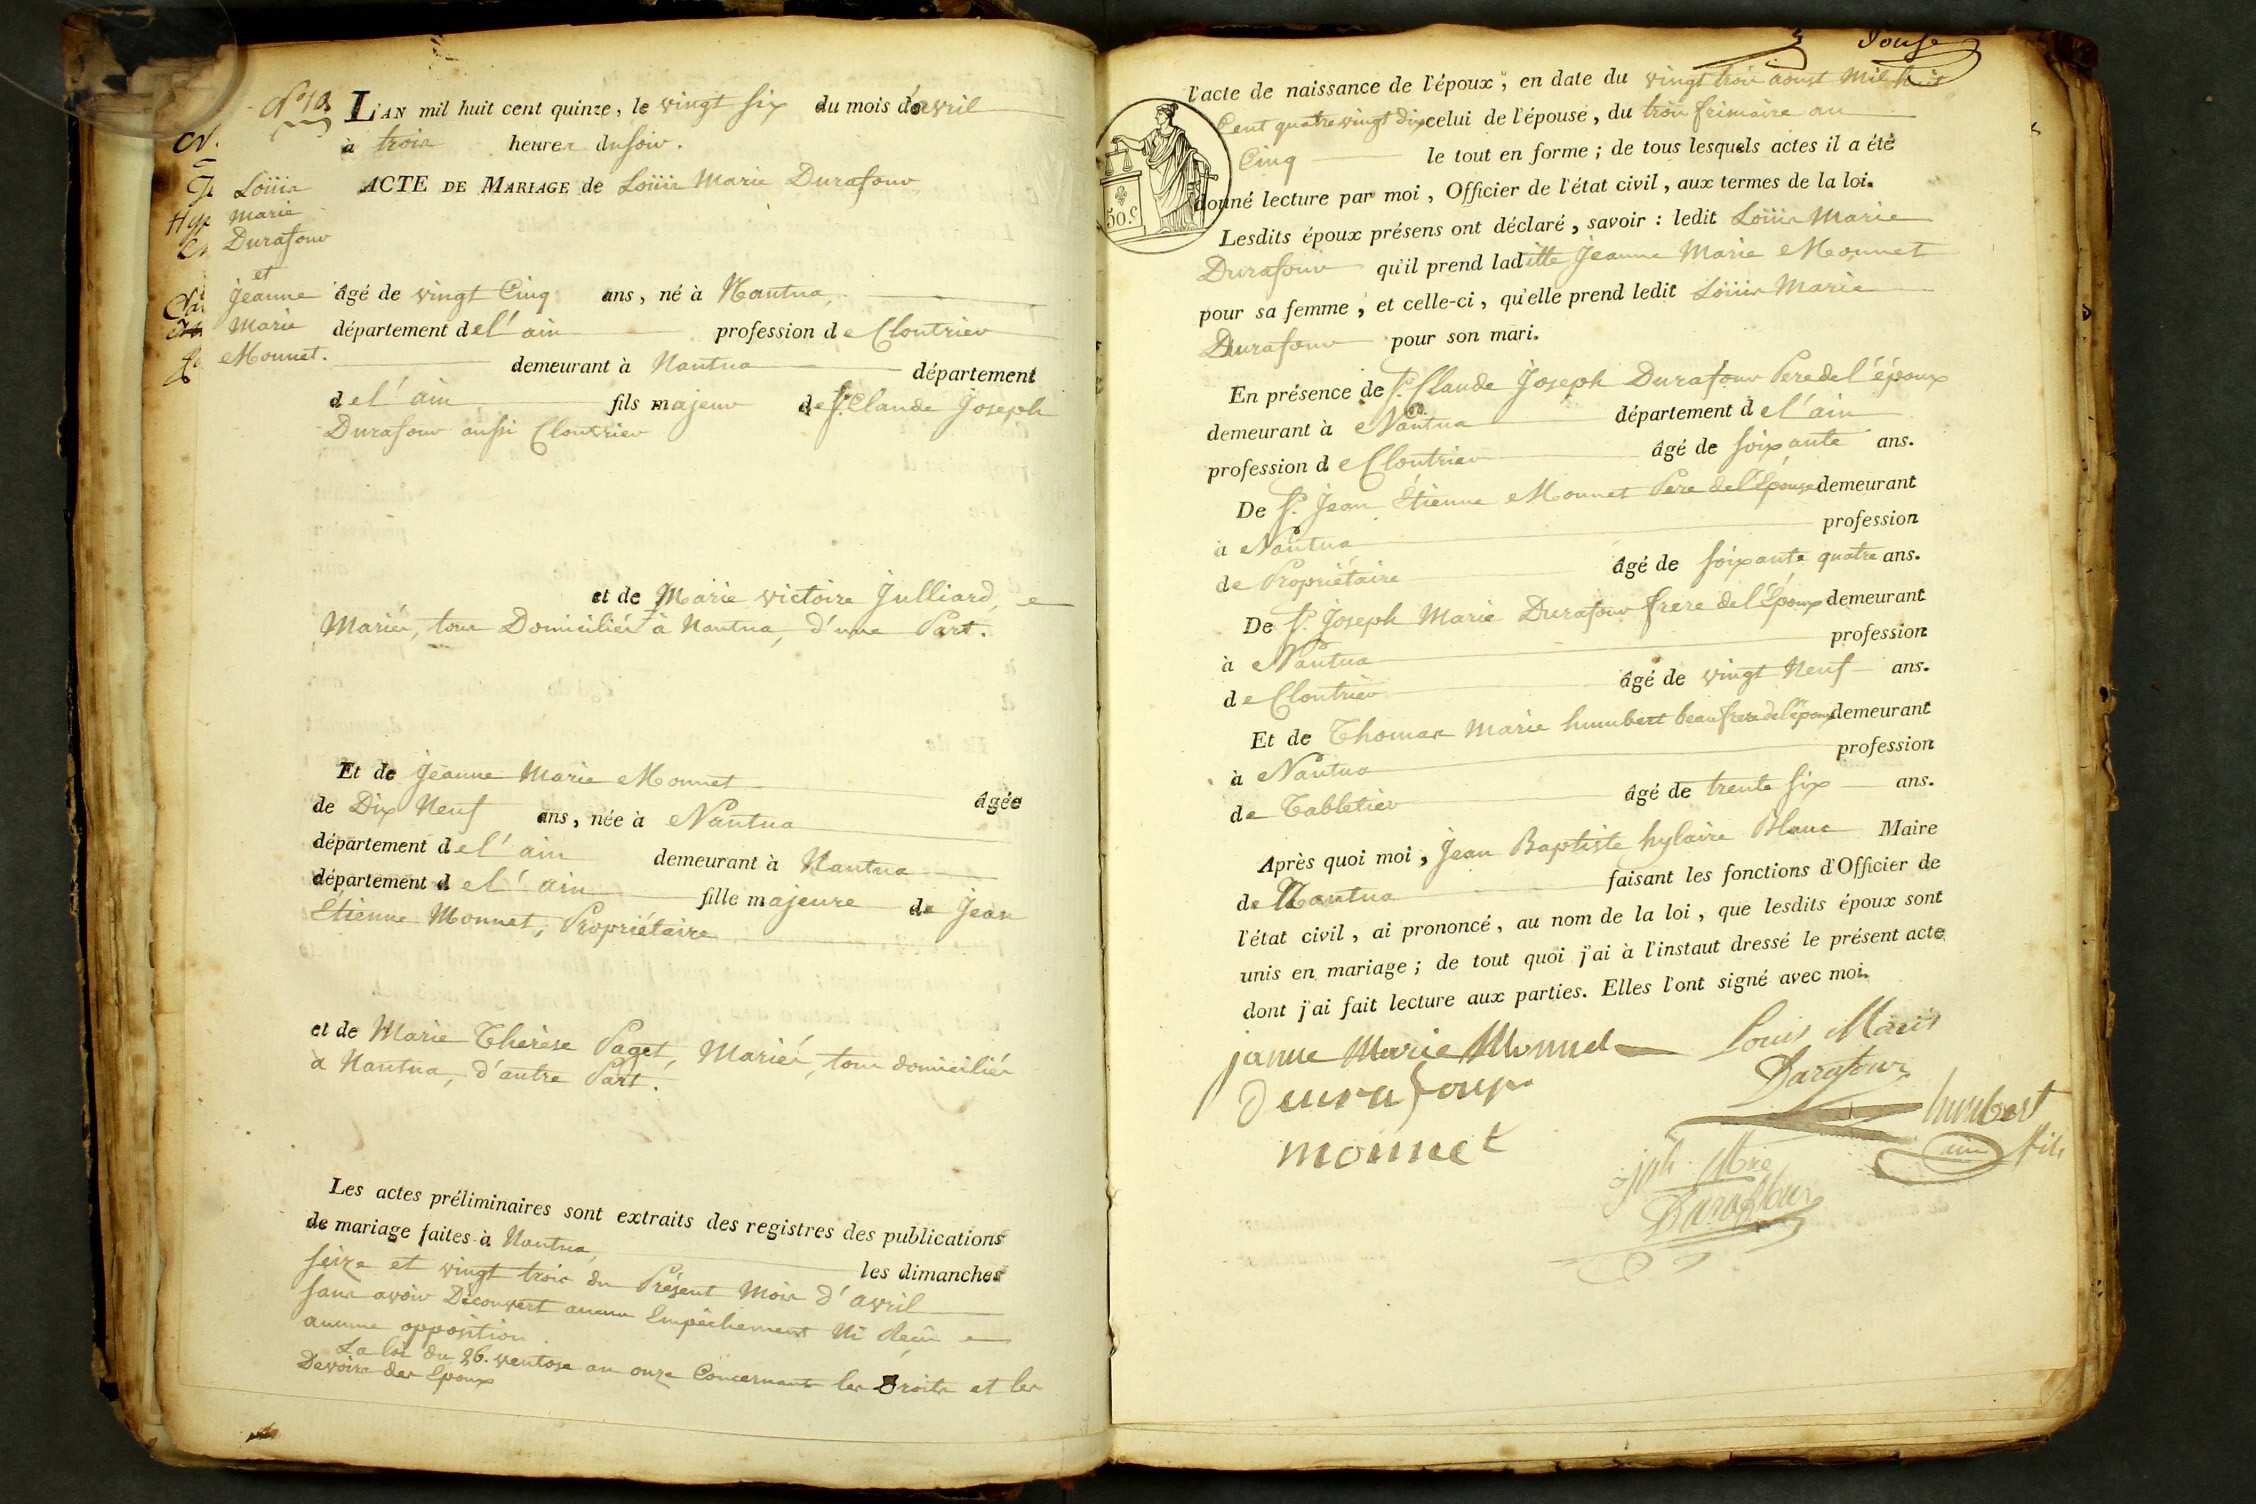 N° 10
Louis
Marie
Durafour
et
Jeanne
Marie
Monnet.
L'AN mil huit cent quinze, le vingt six du mois d'avril
à trois heures du soir.
ACTE DE MARIAGE de Louis Marie Durafour
âgé de vingt Cinq ans, né à Nantua,
département de l'ain profession de Cloutrier
demeurant à Nantua département
de l'ain fils majeur de Sr. Claude Joseph
Durafour aussi Cloutrier
et de Marie victoire Julliard,
Mariés, tous Domiciliés à Nantua, d'une Part.
Et de Jeanne Marie Monnet âgée
de Dix Neuf ans, née à Nantua
département de l'ain demeurant à Nantua
département de l'ain fille majeure de Jean
Etienne Monnet, Propriétaire
et de Marie Thérèse Paget, Mariés, tous domiciliés
à Nantua, d'autre Part.
Les actes préliminaires sont extraits des registres des publications
de mariage faites à Nantua, les dimanches
seize et vingt trois du Présent Mois d'avril
sans avoir Découvert aucun Empêchement Ni Reçu
aucune opposition
La loi du 26. ventose an onze Concernant les Droits et les
Devoirs des Epoux
l'acte de naissance de l'époux, en date du vingt trois aoust Mil sept
Cent quatre vingt dix celui de l'épouse, du trois frimaire an
Cinq le tout en forme; de tous lesquels actes il a été
donné lecture par moi, Officier de l'état civil, aux termes de la loi.
50.c
Lesdits époux présens ont déclaré, savoir : ledit Louis Marie
Durafour qu'il prend laditte Jeanne Marie Monnet
pour sa femme, et celle-ci, qu'elle prend ledit Louis Marie
Durafour pour son mari.
En présence de Sr. Claude Joseph Durafour Pere de l'époux
demeurant à Nantua département de l'ain
profession de Cloutrier âgé de soixante ans.
De Sr. Jean Étienne Monnet Pere de l'Épouse demeurant
à Nantua profession
de Propriétaire âgé de soixante quatre ans.
De Sr. Joseph Marie Durafour frere de l'Époux demeurant
à Nantua profession
de Cloutrier âgé de vingt Neuf ans.
Et de Thomas Marie humbert beau frere de l'époux demeurant
à Nantua profession
de Tabletier âgé de trente six ans.
Après quoi moi, Jean Baptiste hylaire Blanc Maire
de Nantua faisant les fonctions d'Officier de
l'état civil, ai prononcé, au nom de la loi, que lesdits époux sont
unis en mariage; de tout quoi j'ai à l'instaut dressé le présent acte
dont j'ai fait lecture aux parties. Elles l'ont signé avec moi.
janne Marie Monnet Louis Marie
Durafour
durafour humbert
fils
monnet
jph Mrie
Durafour